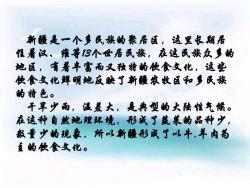 新疆是一个多民族的聚居区，这里长期居
住着汉、维等13个世居民族，在这民族众多的
地区，有着丰富而又独特的饮食文化，这些
饮食文化鲜明地反映了新疆农牧区和多民族
的特色。
干旱少雨，温差大，是典型的大陆性气候。
在这种自然地理环境，形成了蔬菜的品种少，
数量少的现象，所以新疆形成了以牛、羊肉为
主的饮食文化。